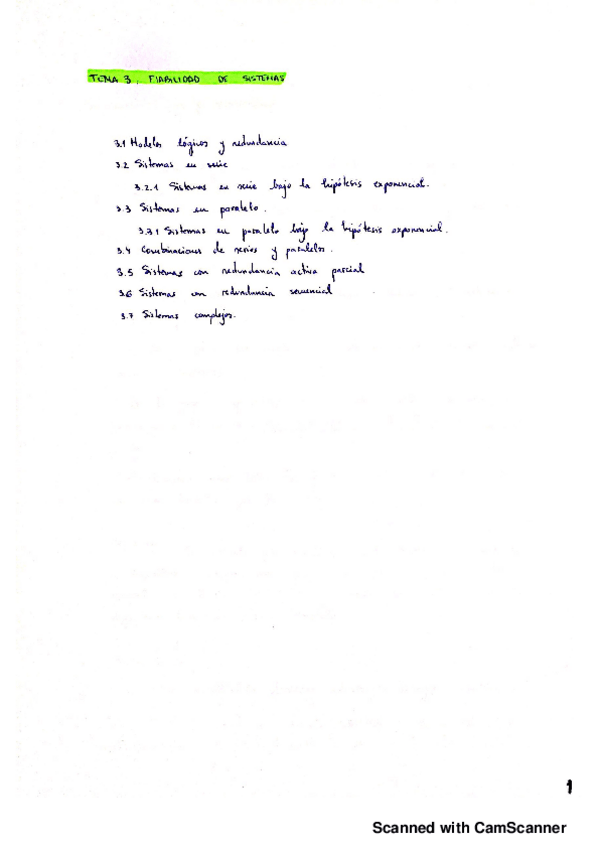 TEMA 3. FIABILIDAD DE SISTEMAS
3.1 Modelos lógicos y redundancia
3.2 Sistemas en serie
3.2.1 Sistemas en serie bajo la hipótesis exponencial.
3.3 Sistemas en paralelo.
3.3.1 Sistemas en paralelo bajo la hipótesis exponencial.
3.4 Combinaciones de series y paralelos.
3.5 Sistemas con redundancia activa parcial
3.6 Sistemas con redundancia secuencial
3.7 Sistemas complejos.
1
Scanned with CamScanner